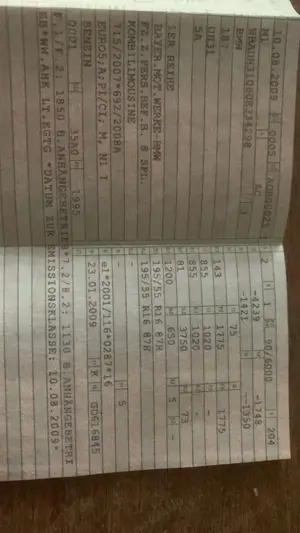 10.08.2009 0005
M1 AC 2 1 90/6000 204
BMW 4239 1748
187 1421 1350
UK31 75
5A 143 1775 1775
1ER REIHE 855 1020
BAYER.MOT.WERKE-BMW 855 1020
FZ.Z.PERS.BEF.B. 8 SPL. 81 3750 73
KOMBILIMOUSINE 1200 650 5 -
195/55 R16 87H
715/2007*692/2008A 195/55 R16 87H
EURO5;A;PI/CI; M, N1 I - 5
BENZIN e1*2001/116*0287*16
0001 35A0 1995 23.01.2009 K
F.1/F.2: 1850 B.ANHÄNGEBETRIEB*7.2/8.2: 1130 B.ANHÄNGEBETRI
EB*WW.AHK LT.EGTG *DATUM ZUR EMISSIONSKLASSE: 10.08.2009*